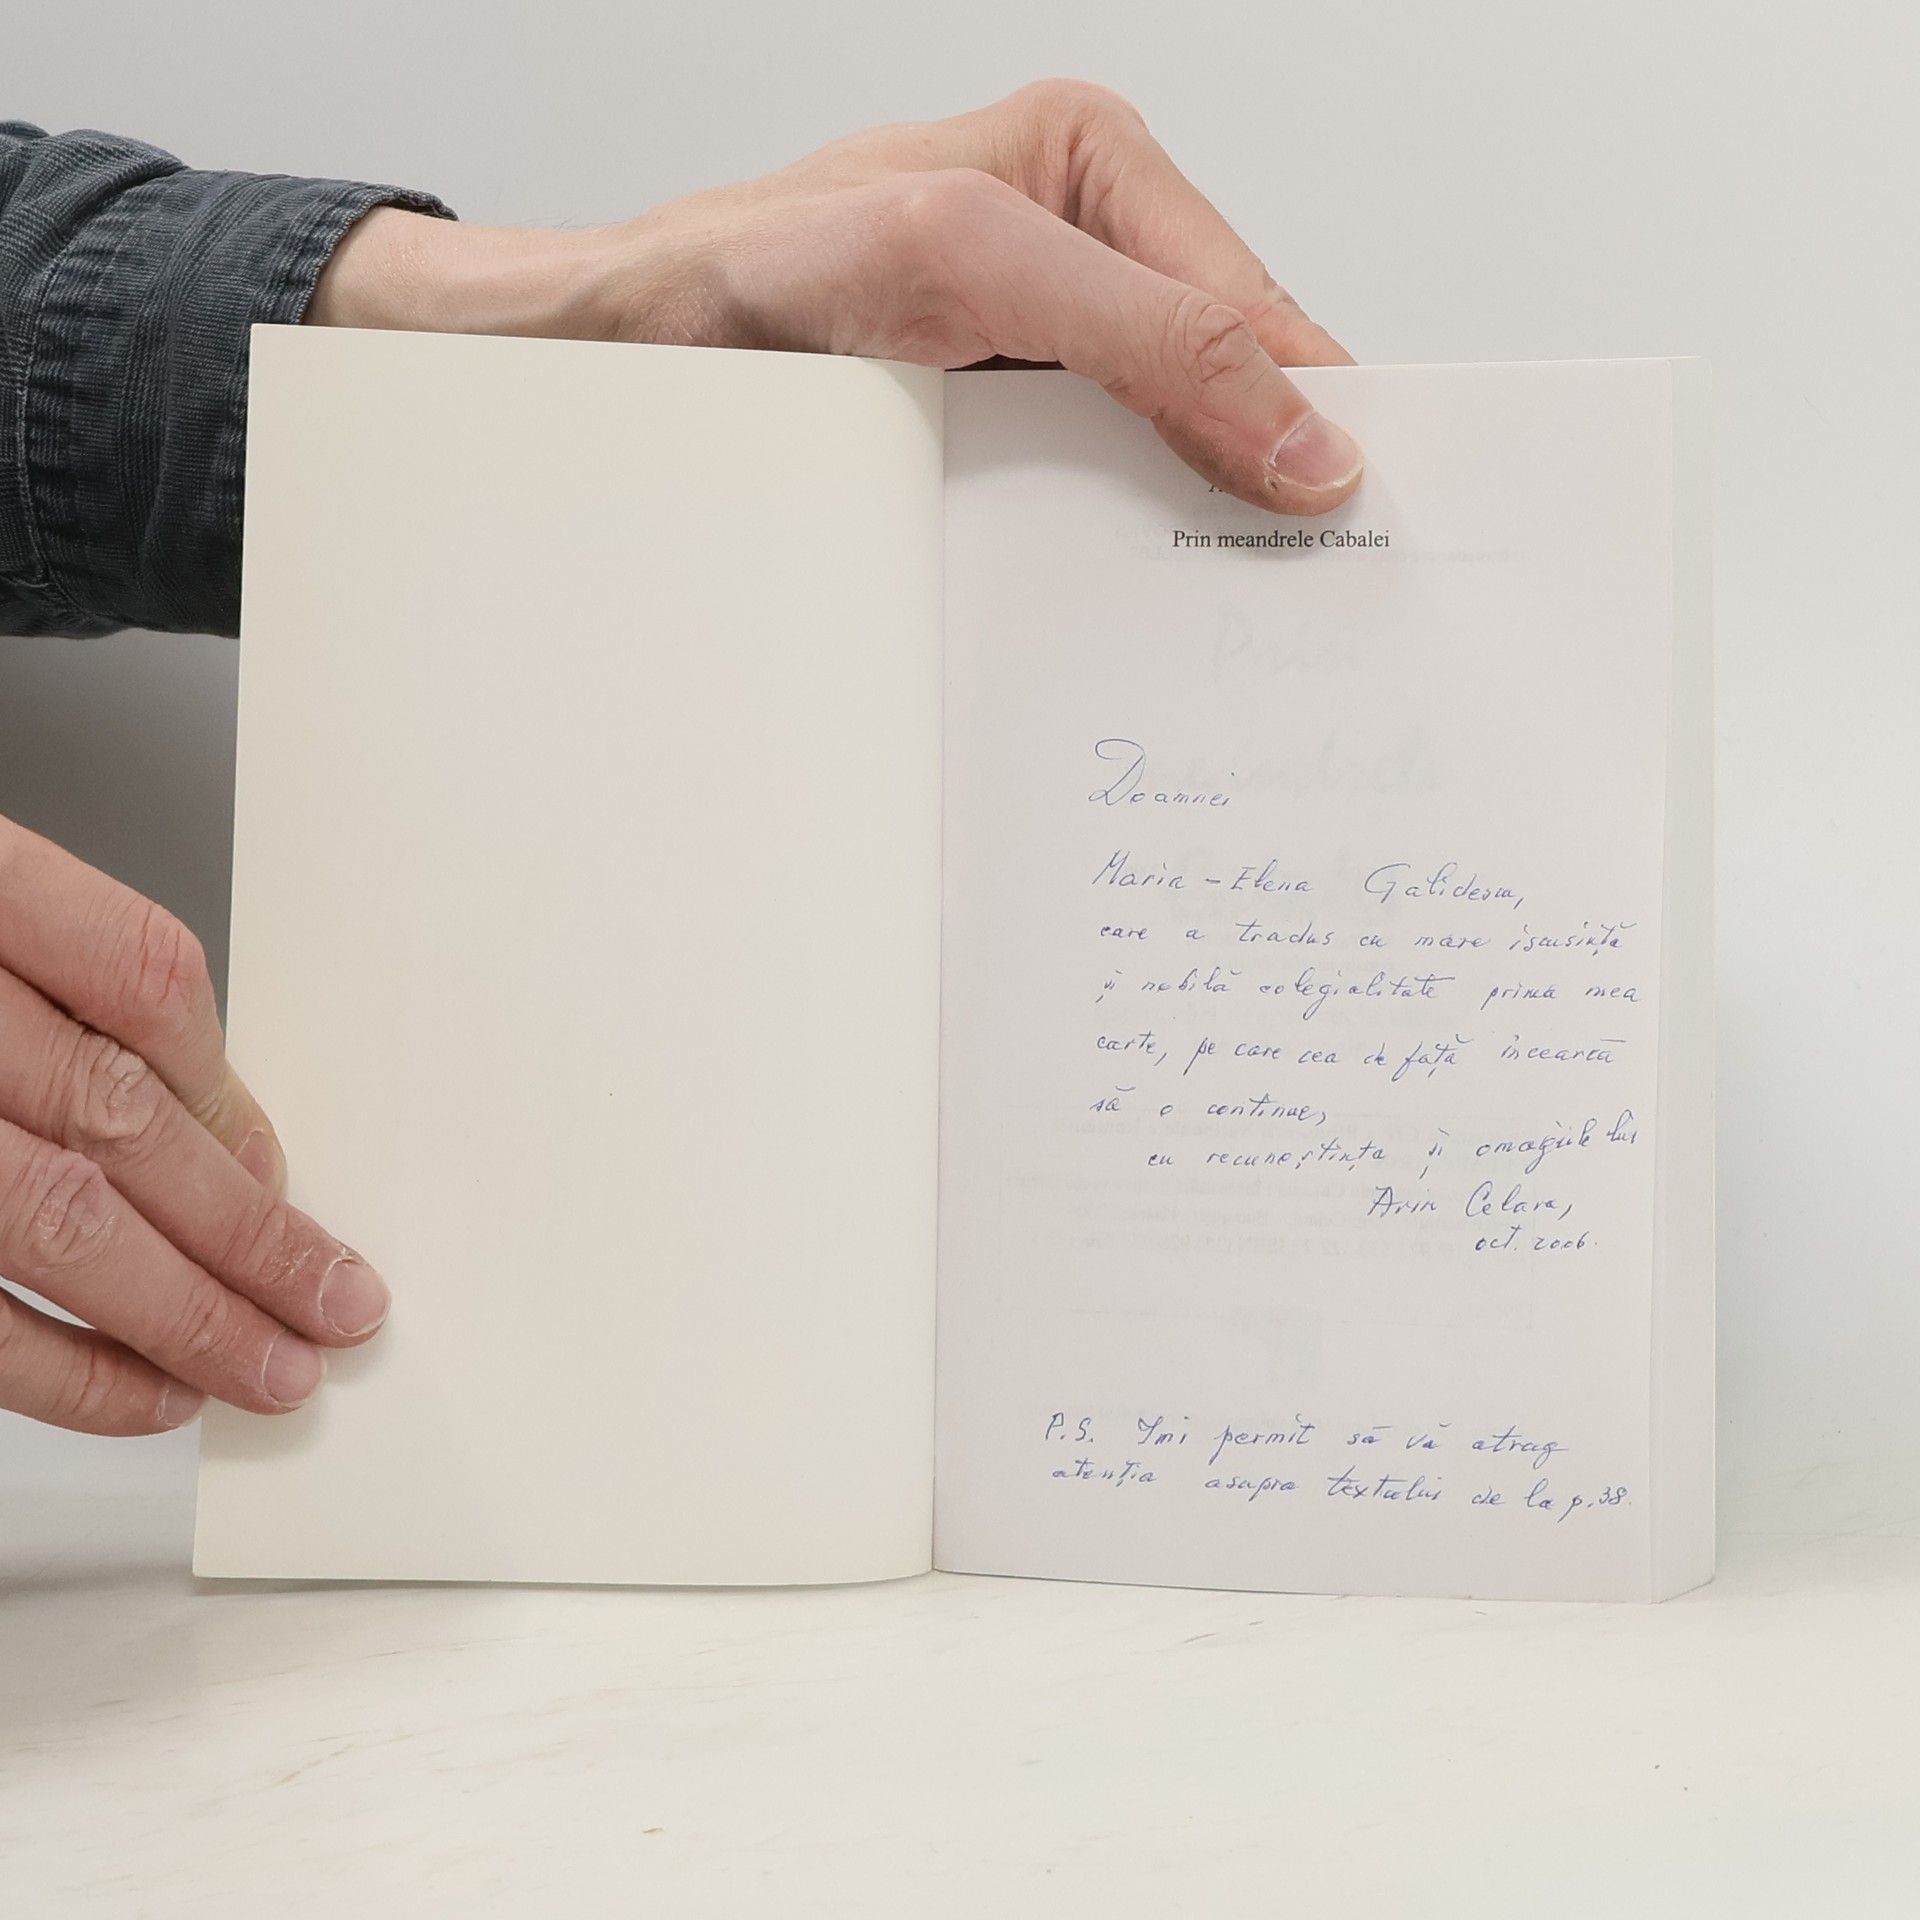 Prin meandrele Cabalei
Doamnei
Maria - Elena Galidescu,
care a tradus cu mare iscusință
și nobilă colegialitate prima mea
carte, pe care cea de față încearcă
să o continue,
cu recunoștința și omagiile lui
Arin Celara,
oct. 2006.
P.S. Imi permit să vă atrag
atenția asupra textului de la p.38.